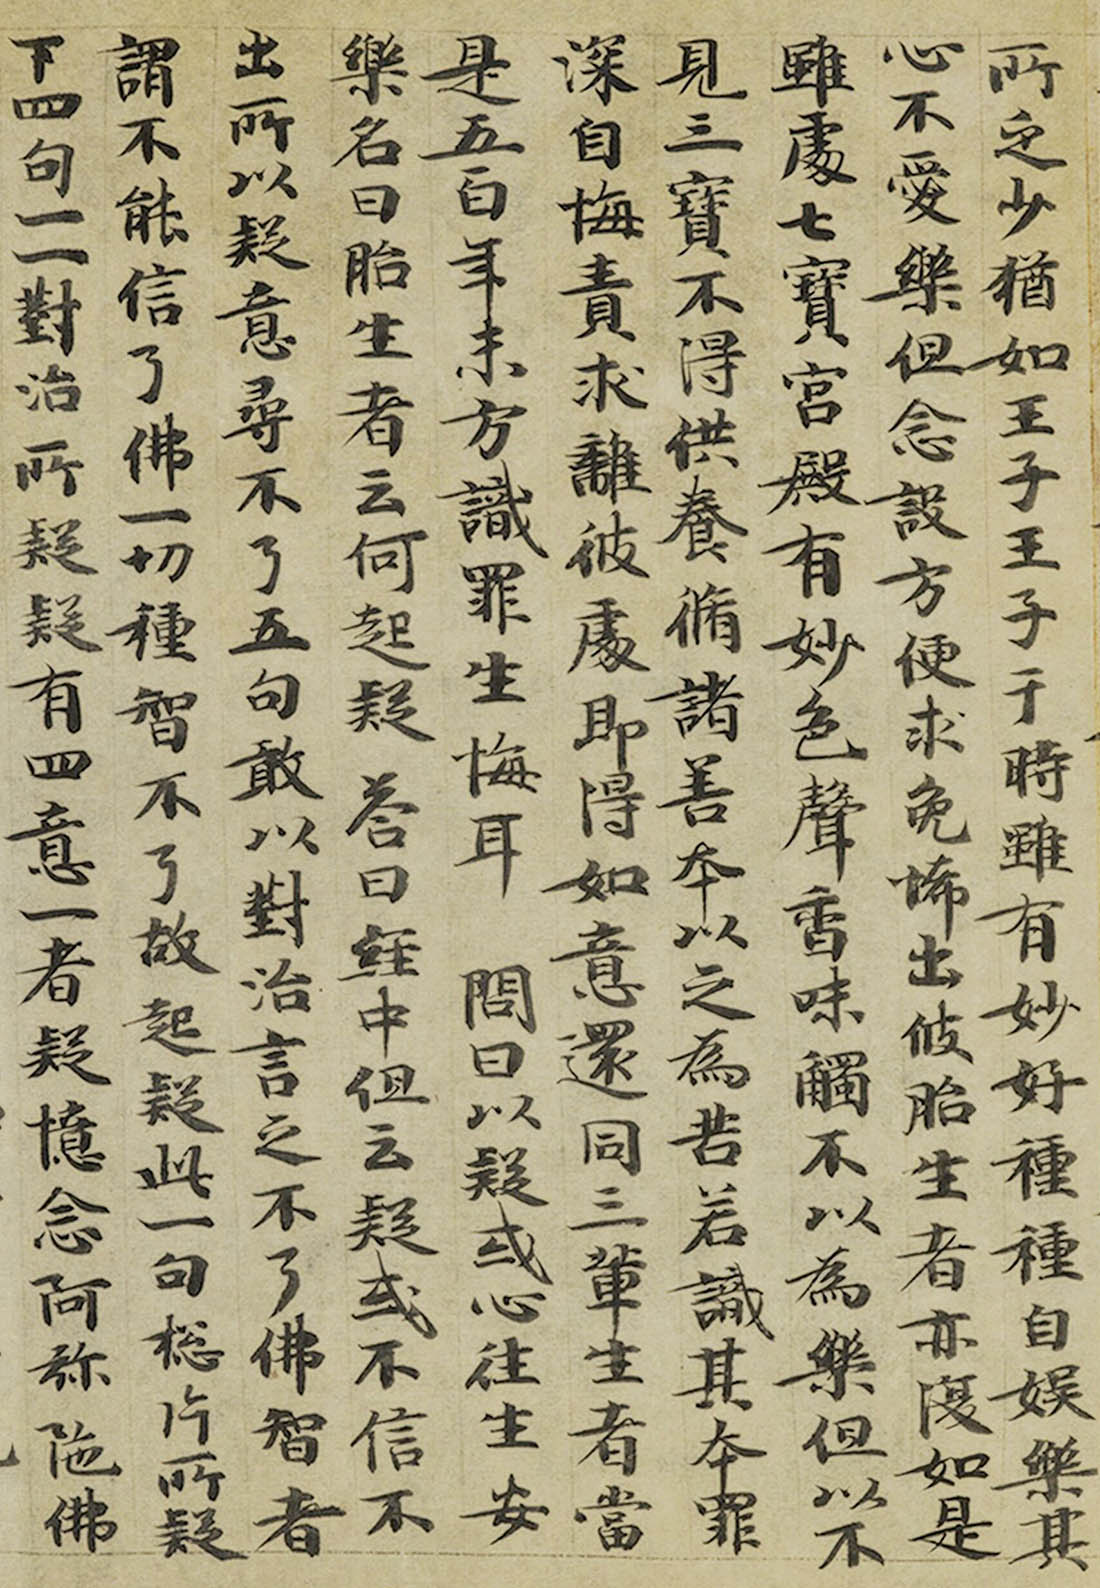 所乏少猶如王子王子于時雖有妙好種種自娛樂其
心不愛樂但念設方便求免怖出彼胎生者亦復如是
雖處七寶宮殿有妙色聲香味觸不以為樂但以不
見三寶不得供養脩諸善本以之為苦若識其本罪
深自悔責求離彼處即得如意還同三輩生者當
是五百年末方識罪生悔耳　問曰以疑或心往生安
樂名曰胎生者云何起疑　荅曰經中但云疑或不信不
出所以疑意尋不了五句敢以對治言之不了佛智者
謂不能信了佛一切種智不了故起疑此一句㧾片所疑
下四句一一對治所疑疑有四意一者疑憶念阿弥陁佛